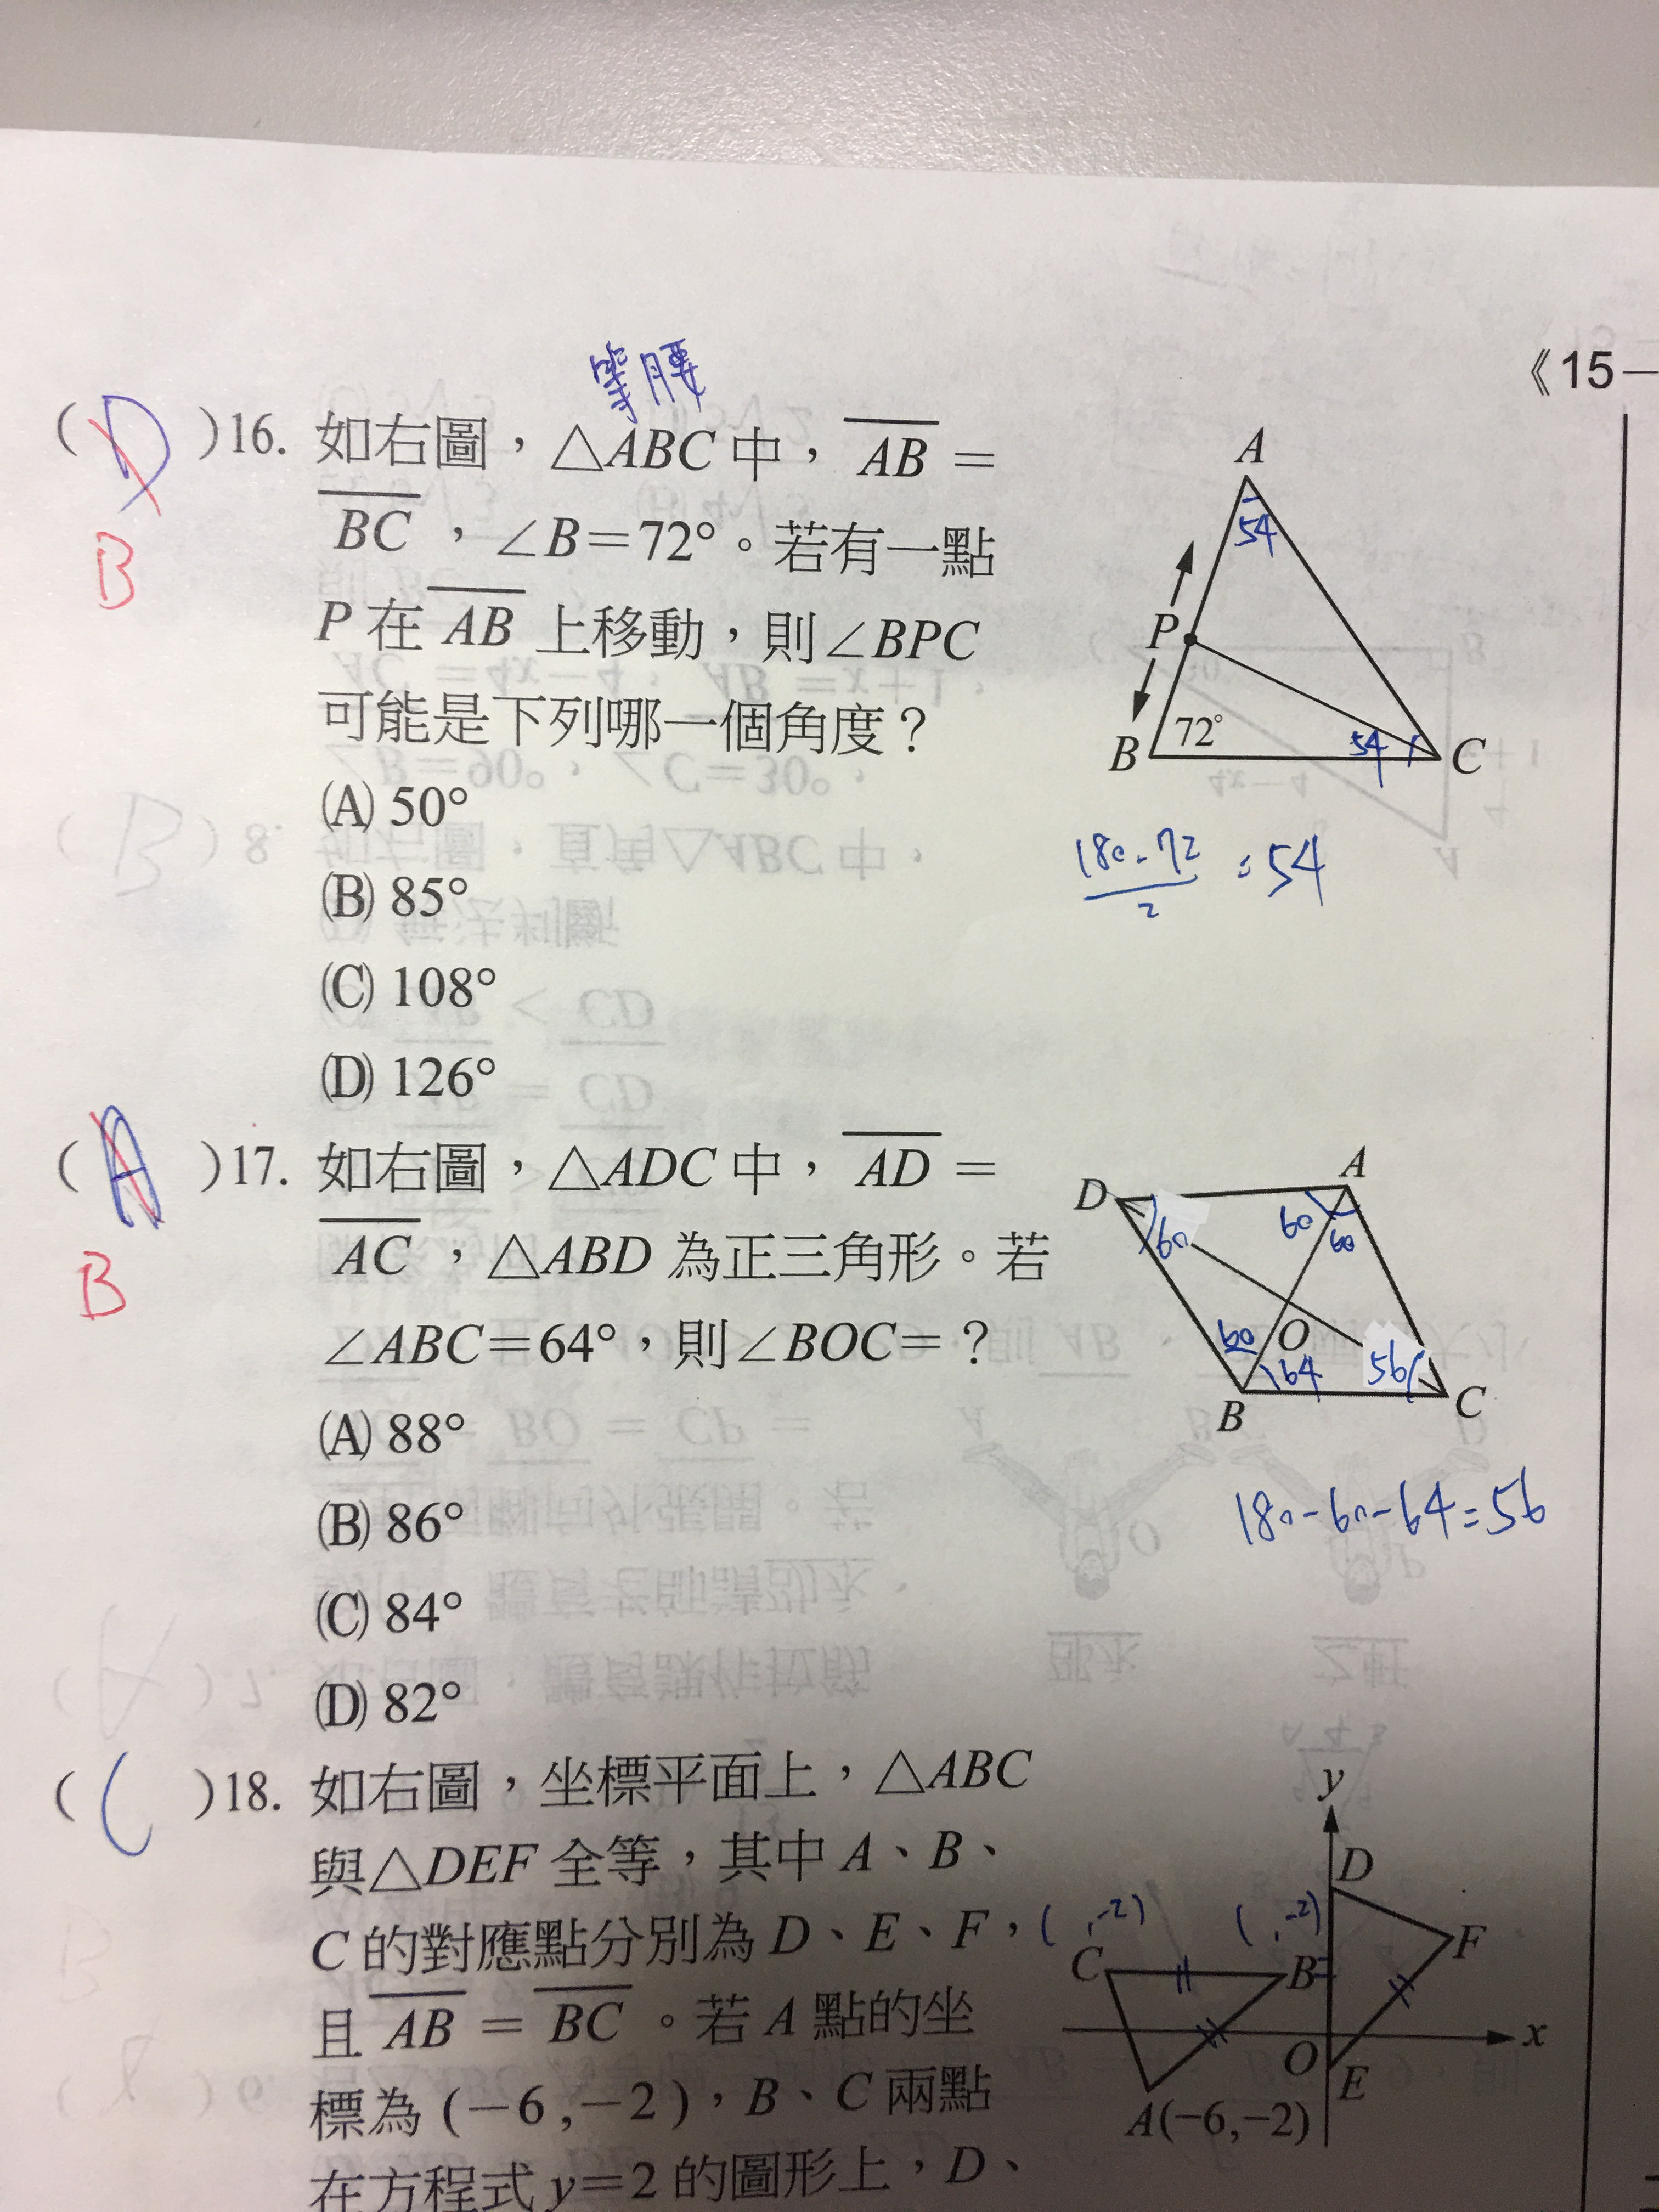 《15－
等腰
(D)16. 如右圖，△ABC 中，AB =
B
BC，∠B＝72°。若有一點
P 在 AB 上移動，則∠BPC
可能是下列哪一個角度？
(A) 50°
(B) 85°
(C) 108°
(D) 126°
A
54
P
B
72°
54
C
180-72
2
=54
(A)17. 如右圖，△ADC 中，AD =
B
AC，△ABD 為正三角形。若
∠ABC＝64°，則∠BOC＝？
(A) 88°
(B) 86°
(C) 84°
(D) 82°
D
A
60
60
60
60
O
64
56
B
C
180-60-64=56
(C)18. 如右圖，坐標平面上，△ABC
與△DEF 全等，其中 A、B、
C 的對應點分別為 D、E、F，
且 AB = BC。若 A 點的坐
標為 (−6,−2)，B、C 兩點
在方程式 y=2 的圖形上，D、
y
D
( ,-2)
( ,-2)
F
C
B
O
x
E
A(−6,−2)